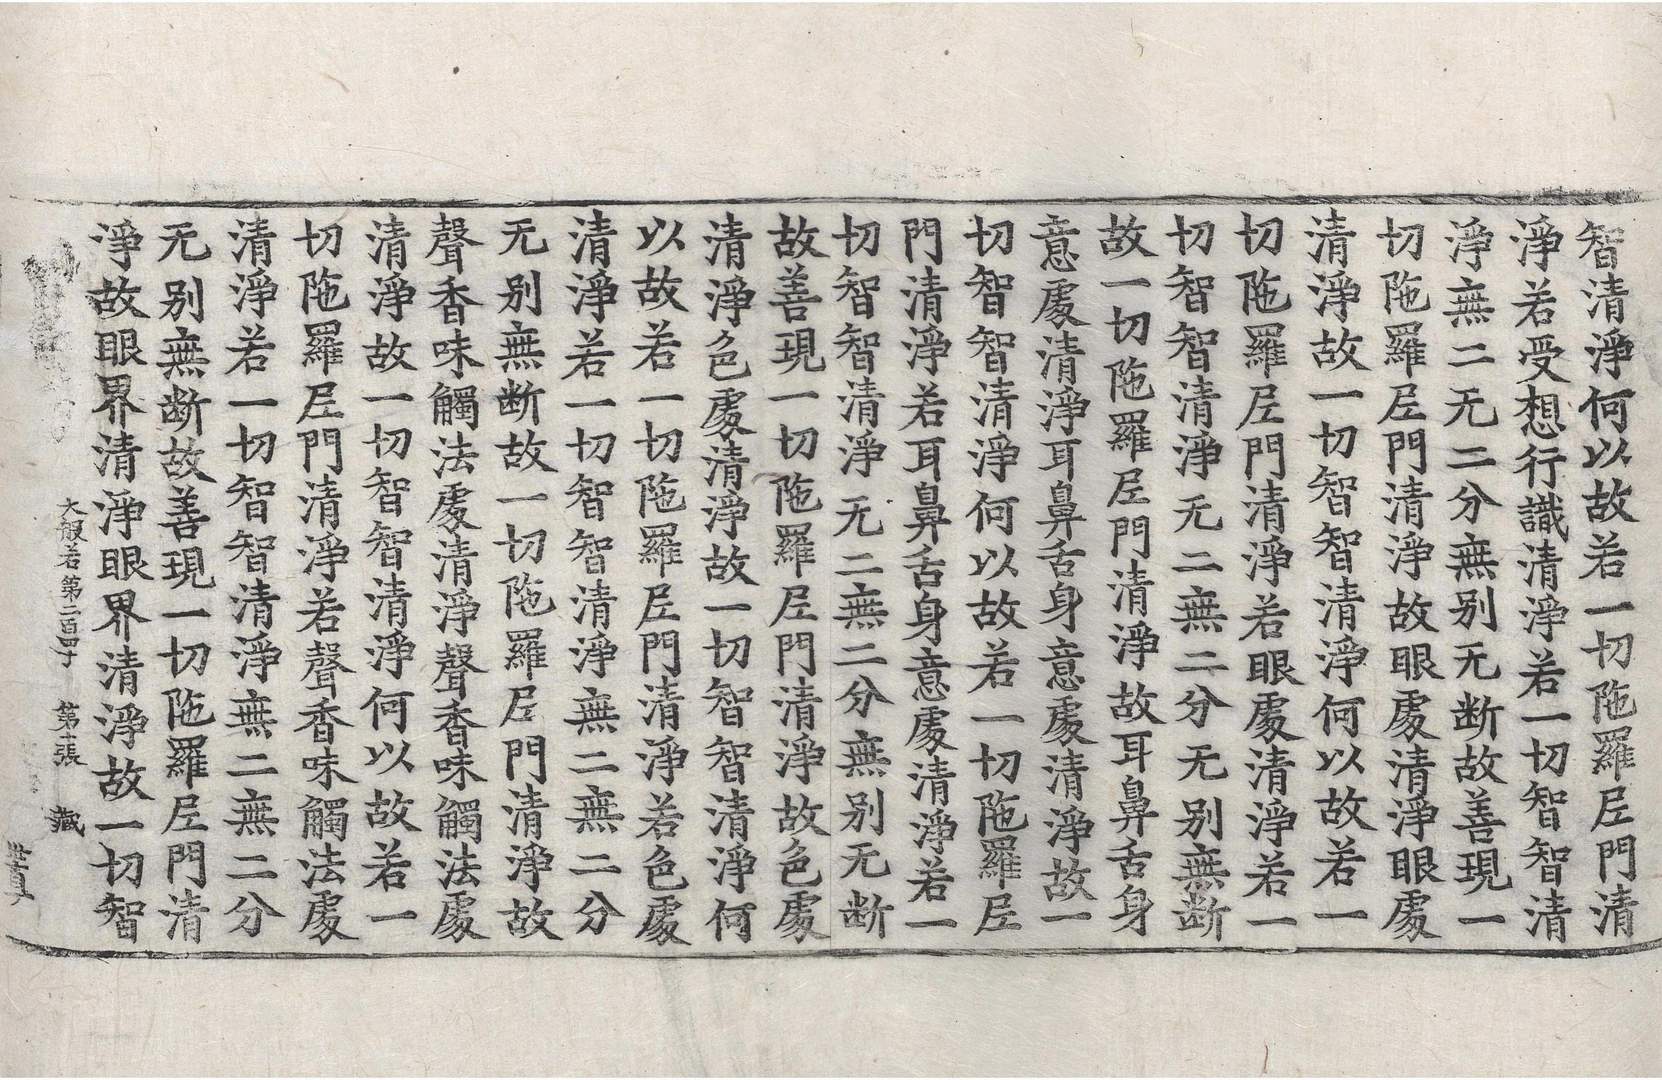 智清淨何以故若一切陁羅尼門清
淨若受想行識清淨若一切智智清
淨無二无二分無别无断故善現一
切陁羅尼門清淨故眼處清淨眼處
清淨故一切智智清淨何以故若一
切陁羅尼門清淨若眼處清淨若一
切智智清淨无二無二分无别無断
故一切陁羅尼門清淨故耳鼻舌身
意處清淨耳鼻舌身意處清淨故一
切智智清淨何以故若一切陁羅尼
門清淨若耳鼻舌身意處清淨若一
切智智清淨无二無二分無别无断
故善現一切陁羅尼門清淨故色處
清淨色處清淨故一切智智清淨何
以故若一切陁羅尼門清淨若色處
清淨若一切智智清淨無二無二分
无别無断故一切陁羅尼門清淨故
聲香味觸法處清淨聲香味觸法處
清淨故一切智智清淨何以故若一
切陁羅尼門清淨若聲香味觸法處
清淨若一切智智清淨無二無二分
无别無断故善現一切陁羅尼門清
淨故眼界清淨眼界清淨故一切智
大般若第二百四 第十張 藏